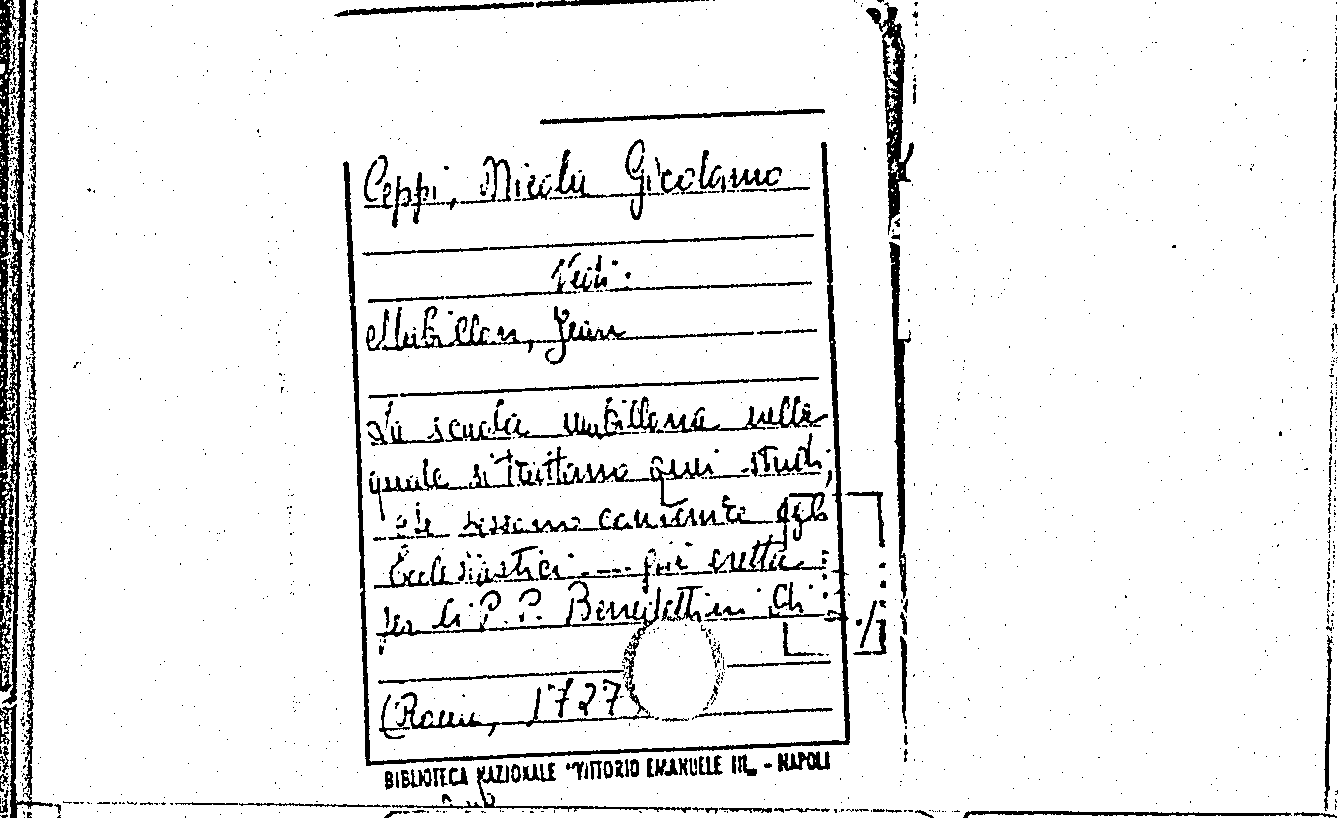 Ceppi, Nicola Girolamo
Vedi:
Mabillon, Jean
La scuola mabillona nella
quale si trattano quei studi,
che possono convenire agli
Ecclesiastici --- già eretta
per li P.P. Benedettini, Ch
./.
(Roma, 1727)
BIBLIOTECA NAZIONALE "VITTORIO EMANUELE III„ - NAPOLI